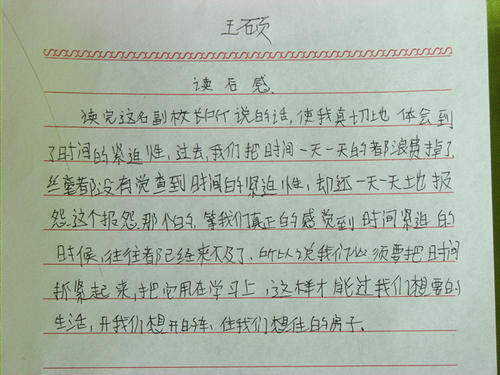 王硕
读后感
读完这名副校长所说的话,使我真切地体会到
了时间的紧迫性,过去,我们把时间一天一天的都浪费掉了
丝毫都没有觉查到时间的紧迫性,却还一天一天土地报
怨这个报怨那个的,等我们真正的感觉到时间紧迫的
时候,往往都已经来不及了、所以说我们必须要把时间
抓紧起来,把它用在学习上,这样才能过我们想要的
生活,开我们想开的车,住我们想住的房子。